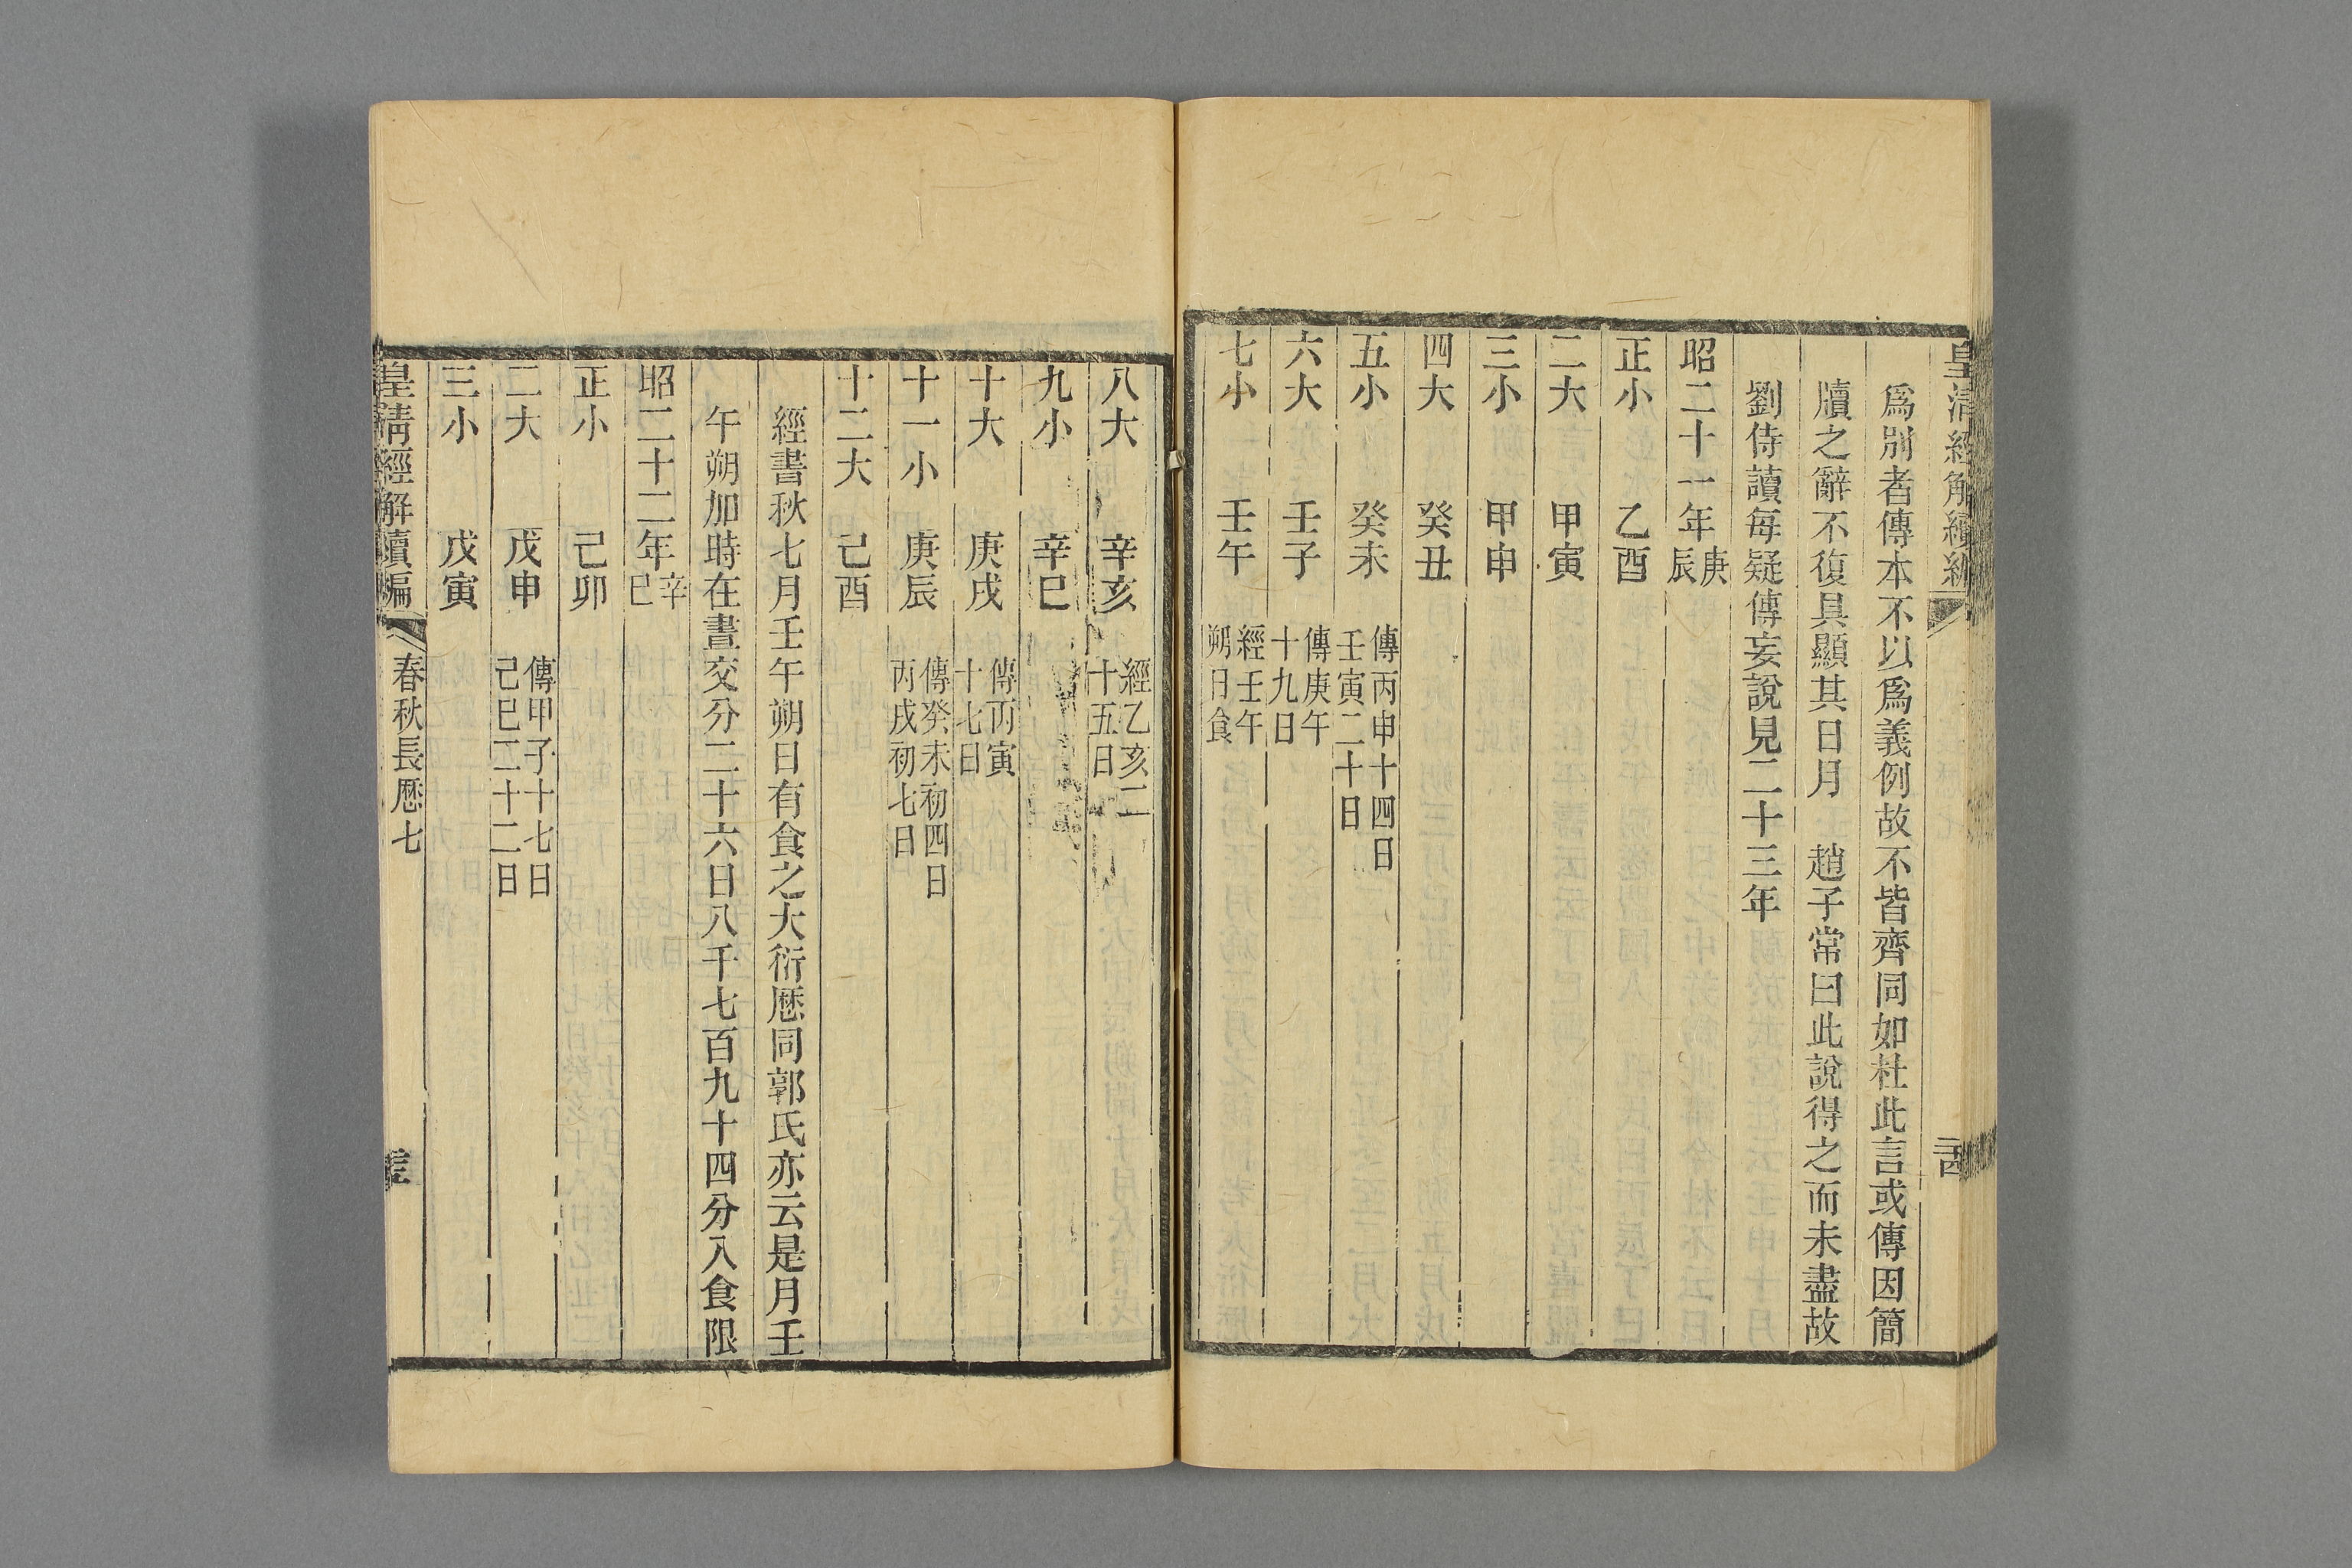 皇清經解續編
爲別者傳本不以爲義例故不皆齊同如杜此言或傳因簡
牘之辭不復具顯其日月　趙子常曰此說得之而未盡故
劉侍讀每疑傳妄說見二十三年
昭二十一年庚辰
正小　乙酉
二大　甲寅
三小　甲申
四大　癸丑
五小　癸未　傳丙申十四日壬寅二十日
六大　壬子　傳庚午十九日
七小　壬午　經壬午朔日食
八大　辛亥　經乙亥二十五日
九小　辛巳
十大　庚戌　傳丙寅十七日
十一小　庚辰　傳癸未初四日丙戌初七日
十二大　己酉
經書秋七月壬午朔日有食之大衍厯同郭氏亦云是月壬
午朔加時在晝交分二十六日八千七百九十四分入食限
昭二十二年辛巳
正小　己卯
二大　戊申　傳甲子十七日己巳二十二日
三小　戊寅
皇清經解續編　春秋長厯七